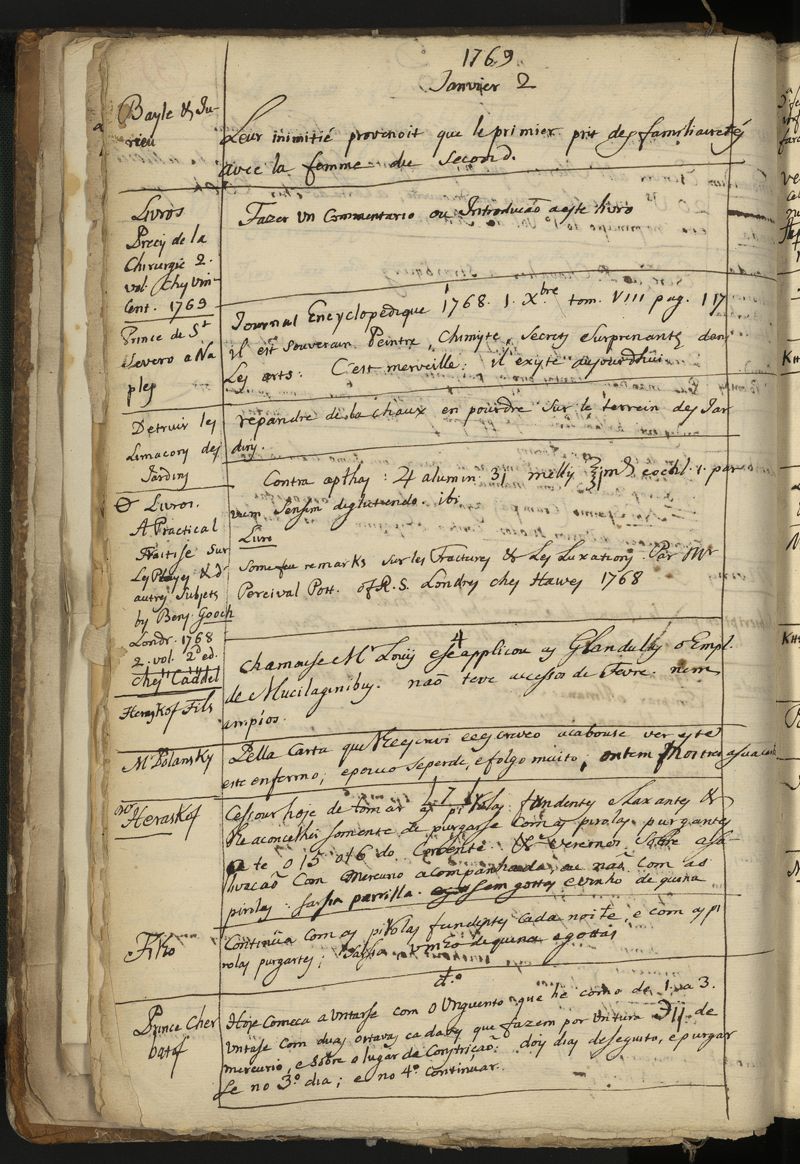 1769
Janvier 2
Bayle & Ju-
rieu
Leur inimitié provenoit que le primier prit des familiairetés
avec la femme du Second.
Livros
Precis de la
Chirurgie 2.
vol. chez Vin-
cent. 1769
Fazer un Commentario ou Introducaõ aeste livro
Prince de St
Severo a Na
ples
Journal Encyclopedique 1768. 1. Xbre tom. VIII pag. 117
il est souverain Peintre, Chimyste, Secrets Surprenants dans
Les arts: C'est merveille: il existe aujourdhui.
Detruir les
Limacons des
Jardins
repandre de la chaux en poudre sur le terrein des Jar
dins.
Contra apthas: 4 alumin. 3j mellis cochl. 1. par
vum sensim deglutiendo. ibi
Livros.
A Practical
Traitise sur
Les Playes & d'
autres Subjets
by Benj. Gooch
Londr. 1768
2. vol. 2d ed.
Ches Caddel
Livro
Some few remarks sur les Fractures & Les Luxations Par Mr
Percival Pott. of R. S. Londres ches Hawes 1768
4
Heraskof Fils
Chamouse Mr Louis ese applicou as Glandulas o Empl.
de Mucilaginibus. naõ teve accessos de Fevre. nem
ampios.
Mr Polansky
Pella Carta que lhe escravi
este enfermo; epouco seperde, efolgo muito; ontem
7
Heraskof
Cessour hoje de tomar as pirolas fundentes e laxantes &
lhe aconcelhei somente de purgarse com as pirolas purgantes
a te o 15 o 16 do Corrente. & verernos sobre a sa-
livacaõ com Mercurio acompanhada, ou naõ com as
pirolas: Salsa parrilla. e vinho de quina
Filho
Continúa com as pirolas fundentes cada noite, e com as pi
rolas purgantes; Salsa, vinho de quina e gottas
do
Prince Cher
batof
Hoje comeca a Untarse com o Unguento que he como de 1. a 3.
Untase com duas oitavas cada vez que fazem por Untura 3ij de
mercurio, e sobre o lugar de Constricaõ: dois dias deseguito, e purgar
se no 3.º dia; e no 4.º continuar.